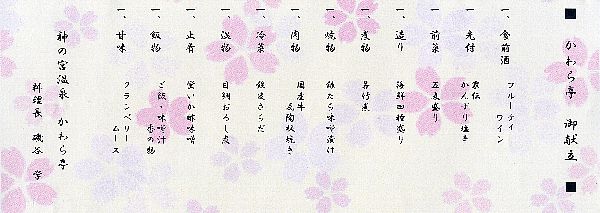 ■ かわら亭 御献立 ■
一、食前酒 フルーティワイン
一、先付 家伝かんずり塩き
一、前菜 五点盛り
一、造り 海鮮四種盛り
一、煮物 若竹煮
一、焼物 銀たら味噌漬け
一、肉物 国産牛瓦陶板焼き
一、冷菜 鉄皮さらだ
一、温物 目鯛おろし煮
一、止肴 蛍いか酢味噌
一、飯物 ご飯・味噌汁 香の物
一、甘味 クランベリームース
神の宮温泉 かわら亭
料理長 磯谷 学